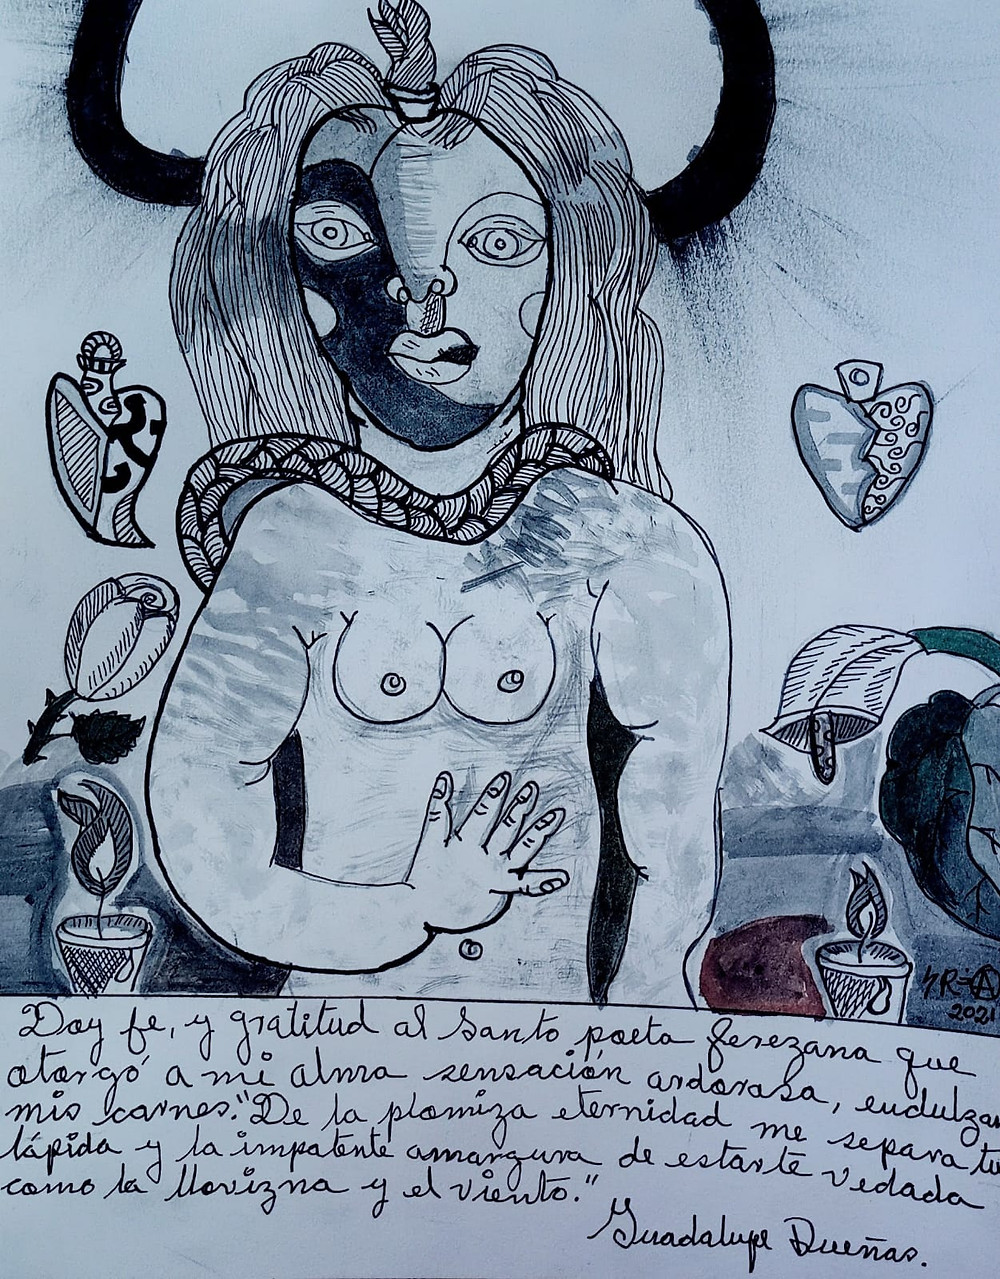 SR=A
2021
Doy fe, y gratitud al Santo poeta ferezana que
otorgó a mi alma sensación ardorosa, endulzan
mis carnes. "De la plomiza eternidad me separa tu
lápida y la impotente amargura de estarte vedada
como la llovizna y el viento."
Guadalupe Dueñas.